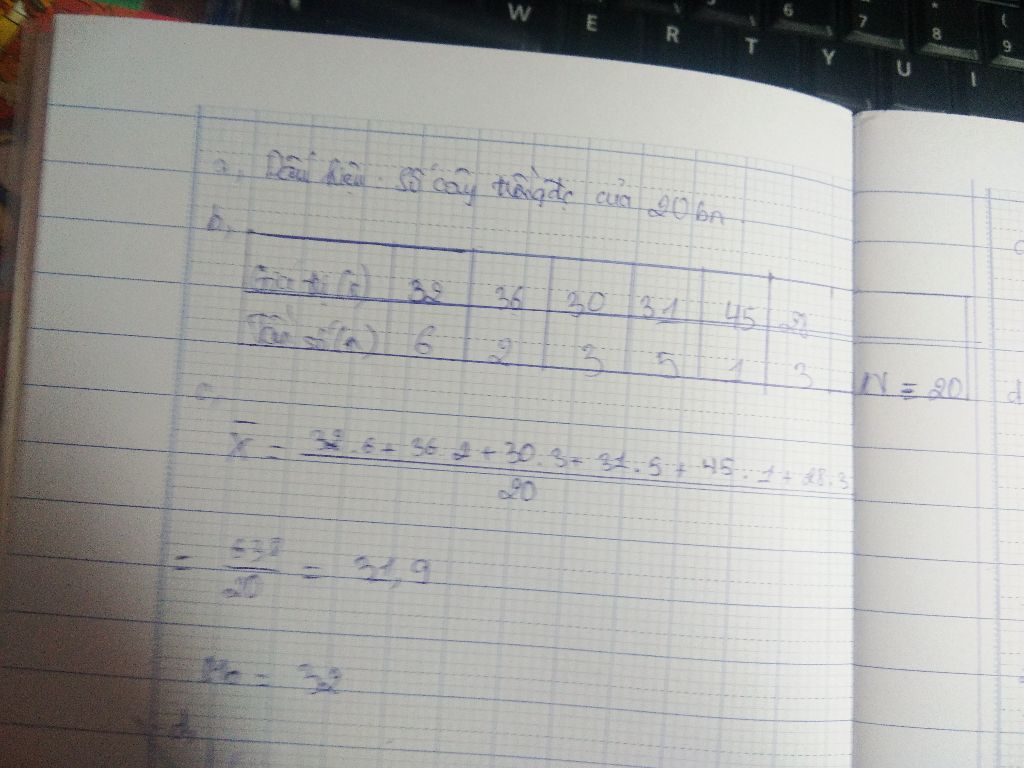 W E R T Y U I
6 7 8 9
a, Dấu hiệu: Số cây trồng đc của 20 bn
b,
Giá trị (x) 32 36 30 31 45 28
Tần số (n) 6 2 3 5 1 3 N = 20
c,
X = 32.6 + 36.2 + 30.3 + 31.5 + 45.1 + 28.3
20
= 638
20 = 31,9
M₀ = 32
d